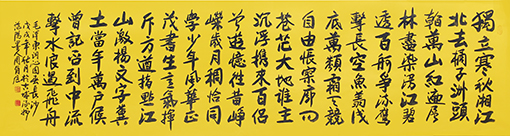 獨立寒秋湘江
北去橘子洲頭
看萬山紅遍層
林盡染漫江碧
透百舸爭流鷹
擊長空魚翔淺
底萬類霜天競
自由悵寥廓問
蒼茫大地誰主
沉浮携來百侣
曾遊憶往昔崢
嶸歲月稠恰同
學少年風華正
茂書生意氣揮
斥方遒指點江
山激揚文字糞
土當年萬户侯
曾記否到中流
擊水浪遏飛舟
毛澤東詞沁園春長沙